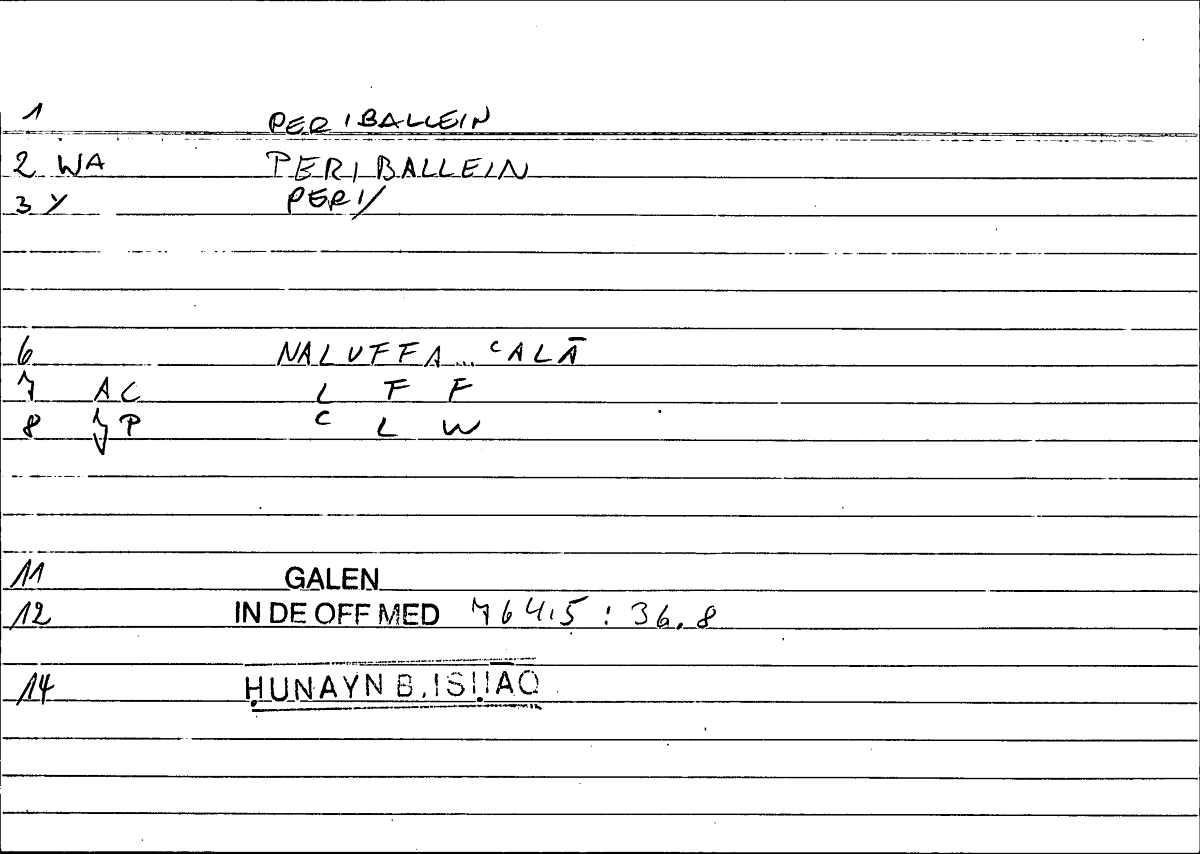 1 PERIBALLEIN
2 WA PERIBALLEIN
3 Y PERI/
6 NALUFFA... ᶜALĀ
7 AC L F F
8 P ᶜ L W
11 GALEN
12 IN DE OFF MED 764.5 : 36.8
14 ḤUNAYN B. ISḤĀQ